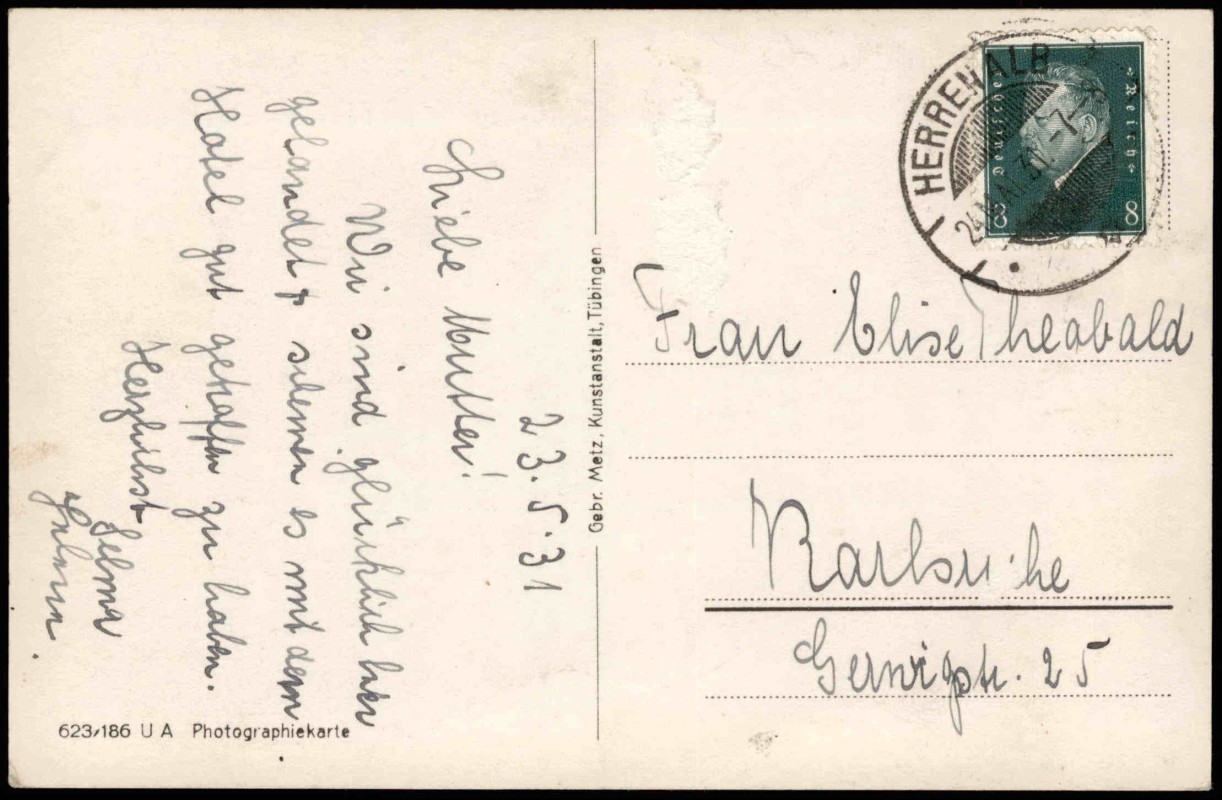 23.5.31
Liebe Mutter!
Wir sind glücklich hier
gelandet & scheinen es mit dem
Hotel gut getroffen zu haben.
Herzlichst
Selma
Gebr. Metz, Kunstanstalt, Tübingen
623/186 U A Photographiekarte
HERRENALB
24.MAI.31.-7-
Deutsches Reich
8 8
Frau Elise Theobald
Karlsruhe
Gerwigstr. 25